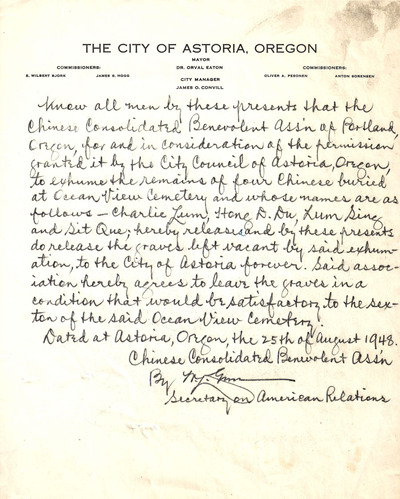 THE CITY OF ASTORIA, OREGON
MAYOR
DR. ORVAL EATON
COMMISSIONERS:
E. WILBERT BJORK JAMES S. HOGG
CITY MANAGER
JAMES O. CONVILL
COMMISSIONERS:
OLIVER A. PESONEN ANTON SORENSEN
Know all men by these presents that the
Chinese Consolidated Benevolent Ass'n of Portland,
Oregon, for and in consideration of the permission
granted it by the City Council of Astoria, Oregon,
to exhume the remains of four Chinese buried
at Ocean View Cemetery and whose names are as
follows — Charlie Lum, Hong D. Du, Lum Sing
and Sit Que, hereby release and by these presents
do release the graves left vacant by said exhum-
ation, to the City of Astoria forever. Said assoc-
iation hereby agrees to leave the graves in a
condition that would be satisfactory to the sex-
ton of the said Ocean View Cemetery.
Dated at Astoria, Oregon, the 25th of August 1948.
Chinese Consolidated Benevolent Ass'n
By
Secretary on American Relations